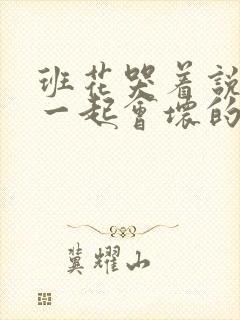 班花哭着說
一起會壞的
冀耀山